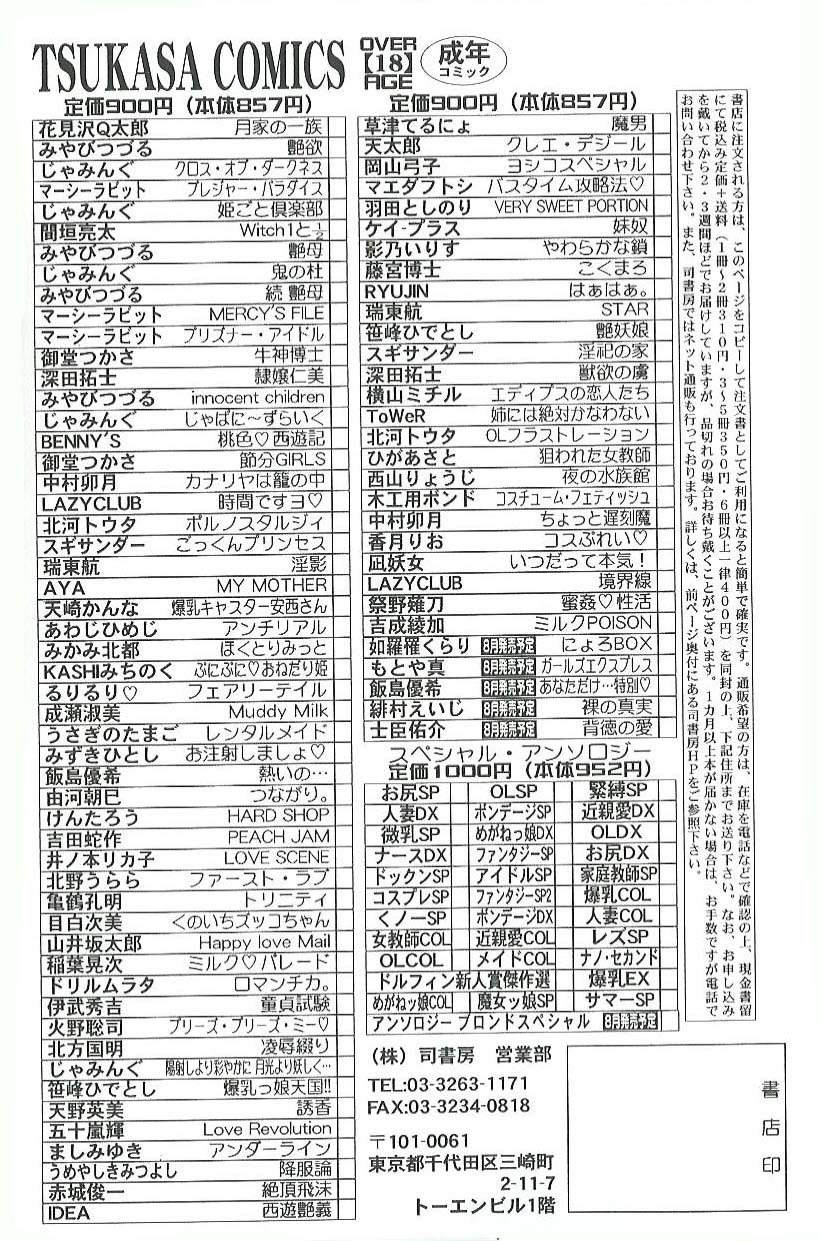 TSUKASA COMICS
OVER
【18】
AGE
成年
コミック
定価900円（本体857円）
花見沢Q太郎 月家の一族
みやびつづる 艶欲
じゃみんぐ クロス・オブ・ダークネス
マーシーラビット プレジャー・パラダイス
じゃみんぐ 姫ごと倶楽部
間垣亮太 Witch1と½
みやびつづる 艶母
じゃみんぐ 鬼の杜
みやびつづる 続 艶母
マーシーラビット MERCY'S FILE
マーシーラビット プリズナー・アイドル
御堂つかさ 牛神博士
深田拓士 隷嬢仁美
みやびつづる innocent children
じゃみんぐ じゃぱに〜ずらいく
BENNY'S 桃色♡西遊記
御堂つかさ 節分GIRLS
中村卯月 カナリヤは籠の中
LAZYCLUB 時間ですヨ♡
北河トウタ ポルノスタルジィ
スギサンダー ごっくんプリンセス
瑞東航 淫影
AYA MY MOTHER
天崎かんな 爆乳キャスター安西さん
あわじひめじ アンチリアル
みかみ北都 ほくとりみっと
KASHIみちのく ぷにぷに♡おねだり姫
るりるり♡ フェアリーテイル
成瀬淑美 Muddy Milk
うさぎのたまご レンタルメイド
みずきひとし お注射しましょ♡
飯島優希 熱いの…
由河朝巳 つながり。
けんたろう HARD SHOP
吉田蛇作 PEACH JAM
井ノ本リカ子 LOVE SCENE
北野うらら ファースト・ラブ
亀鶴孔明 トリニティ
目白次美 くのいちズッコちゃん
山井坂太郎 Happy love Mail
稲葉晃次 ミルク♡パレード
ドリルムラタ ロマンチカ。
伊武秀吉 童貞試験
火野聡司 プリーズ・プリーズ・ミー♡
北方国明 凌辱綴り
じゃみんぐ 陽射しより彩やかに 月光より妖しく…
笹峰ひでとし 爆乳っ娘天国!!
天野英美 誘香
五十嵐輝 Love Revolution
ましみゆき アンダーライン
うめやしきみつよし 降服論
赤城俊一 絶頂飛沫
IDEA 西遊艶義
定価900円（本体857円）
草津てるにょ 魔男
天太郎 クレエ・デジール
岡山弓子 ヨシコスペシャル
マエダフトシ バスタイム攻略法♡
羽田としのり VERY SWEET PORTION
ケイ-プラス 妹奴
影乃いりす やわらかな鎖
藤宮博士 こくまろ
RYUJIN はぁはぁ。
瑞東航 STAR
笹峰ひでとし 艶妖娘
スギサンダー 淫祀の家
深田拓士 獣欲の虜
横山ミチル エディプスの恋人たち
ToWeR 姉には絶対かなわない
北河トウタ OLフラストレーション
ひがあさと 狙われた女教師
西山りょうじ 夜の水族館
木工用ボンド コスチューム・フェティッシュ
中村卯月 ちょっと遅刻魔
香月りお コスぷれい♡
凪妖女 いつだって本気！
LAZYCLUB 境界線
祭野薙刀 蜜姦♡性活
吉成綾加 ミルクPOISON
如羅罹くらり 8月発売予定 にょろBOX
もとや真 8月発売予定 ガールズエクスプレス
飯島優希 8月発売予定 あなただけ…特別♡
緋村えいじ 8月発売予定 裸の真実
士臣佑介 8月発売予定 背徳の愛
スペシャル・アンソロジー
定価1000円（本体952円）
お尻SP OLSP 緊縛SP
人妻DX ボンデージSP 近親愛DX
微乳SP めがねっ娘DX OLDX
ナースDX ファンタジーSP お尻DX
ドックンSP アイドルSP 家庭教師SP
コスプレSP ファンタジーSP2 爆乳COL
くノ一SP ボンデージDX 人妻COL
女教師COL 近親愛COL レズSP
OLCOL メイドCOL ナノ・セカンド
ドルフィン新人賞傑作選 爆乳EX
めがねッ娘COL 魔女ッ娘SP サマーSP
アンソロジー ブロンドスペシャル 8月発売予定
書店に注文される方は、このページをコピーして注文書としてご利用になると簡単で確実です。通販希望の方は、在庫を電話などで確認の上、現金書留
にて税込み定価＋送料（1冊〜2冊310円・3〜5冊350円・6冊以上一律400円）を同封の上、下記住所までお送り下さい。なお、お申し込み
を戴いてから2・3週間ほどでお届けしていますが、品切れの場合お待ち戴くことがございます。1カ月以上本が届かない場合は、お手数ですが電話で
お問い合わせ下さい。また、司書房ではネット通販も行っております。詳しくは、前ページ奥付にある司書房HPをご参照下さい。
（株）司書房 営業部
TEL:03-3263-1171
FAX:03-3234-0818
〒101-0061
東京都千代田区三崎町
2-11-7
トーエンビル1階
書店印